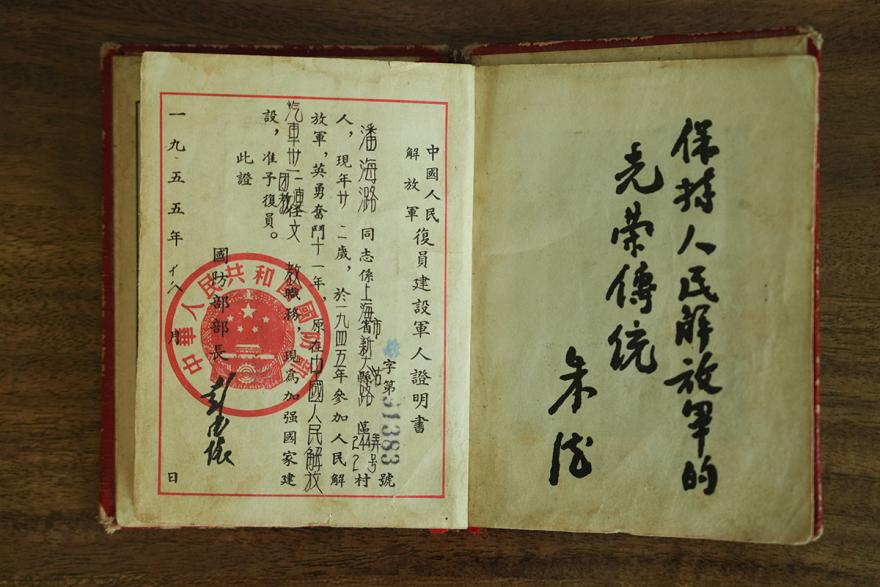 保持人民解放軍的
光荣傳統
朱德
中國人民
解放軍
復員建設軍人證明書
字第51383號
潘海潞同志係上海市省新大沽縣路區村
人，現年廿二歲，於一九四五年參加人民解
放軍，英勇奮鬥十一年，原在中國人民解放
汽車廿一团二連任文教職務，現為加强國家建
設，准予復員。
此證
國防部部長
彭德怀
中華人民共和國國防部
一九五五年 月 日